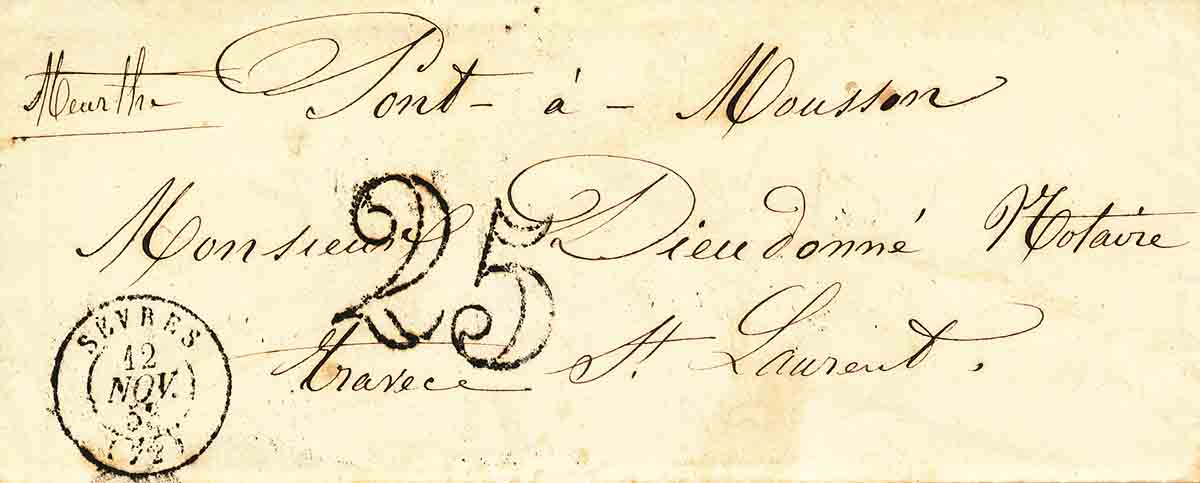 Meurthe Pont-à-Mousson
Monsieur Dieudonné Notaire
25
travece St. Laurent.
SÈVRES
12
NOV.
(72)